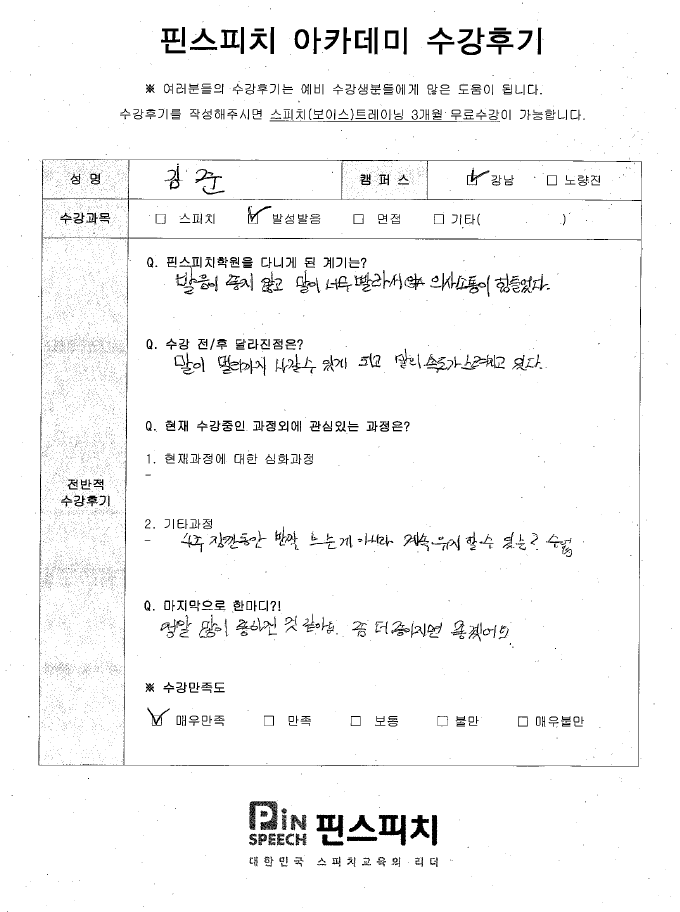 핀스피치 아카데미 수강후기
※ 여러분들의 수강후기는 예비 수강생분들에게 많은 도움이 됩니다.
수강후기를 작성해주시면 스피치(보이스)트레이닝 3개월 무료수강이 가능합니다.
성 명 김 준 캠 퍼 스 ☑ 강남 □ 노량진
수강과목 □ 스피치 ☑ 발성발음 □ 면접 □ 기타( )
Q. 핀스피치학원을 다니게 된 계기는?
발음이 좋지 않고 말이 너무 빨라서 의사소통이 힘들었다.
Q. 수강 전/후 달라진점은?
말이 멀리까지 나갈수 있게 되고 말의 속도가 느려지고 있다.
Q. 현재 수강중인 과정외에 관심있는 과정은?
1. 현재과정에 대한 심화과정
-
전반적
수강후기
2. 기타과정
- 4주 잠깐동안 반짝 느는게 아니라 계속 유지 할수 있는? 수업
Q. 마지막으로 한마디?!
정말 많이 좋아진 것 같아요. 좀 더 좋아지면 좋겠어요
※ 수강만족도
☑ 매우만족 □ 만족 □ 보통 □ 불만 □ 매우불만
PiN SPEECH 핀스피치
대한민국 스피치교육의 리더